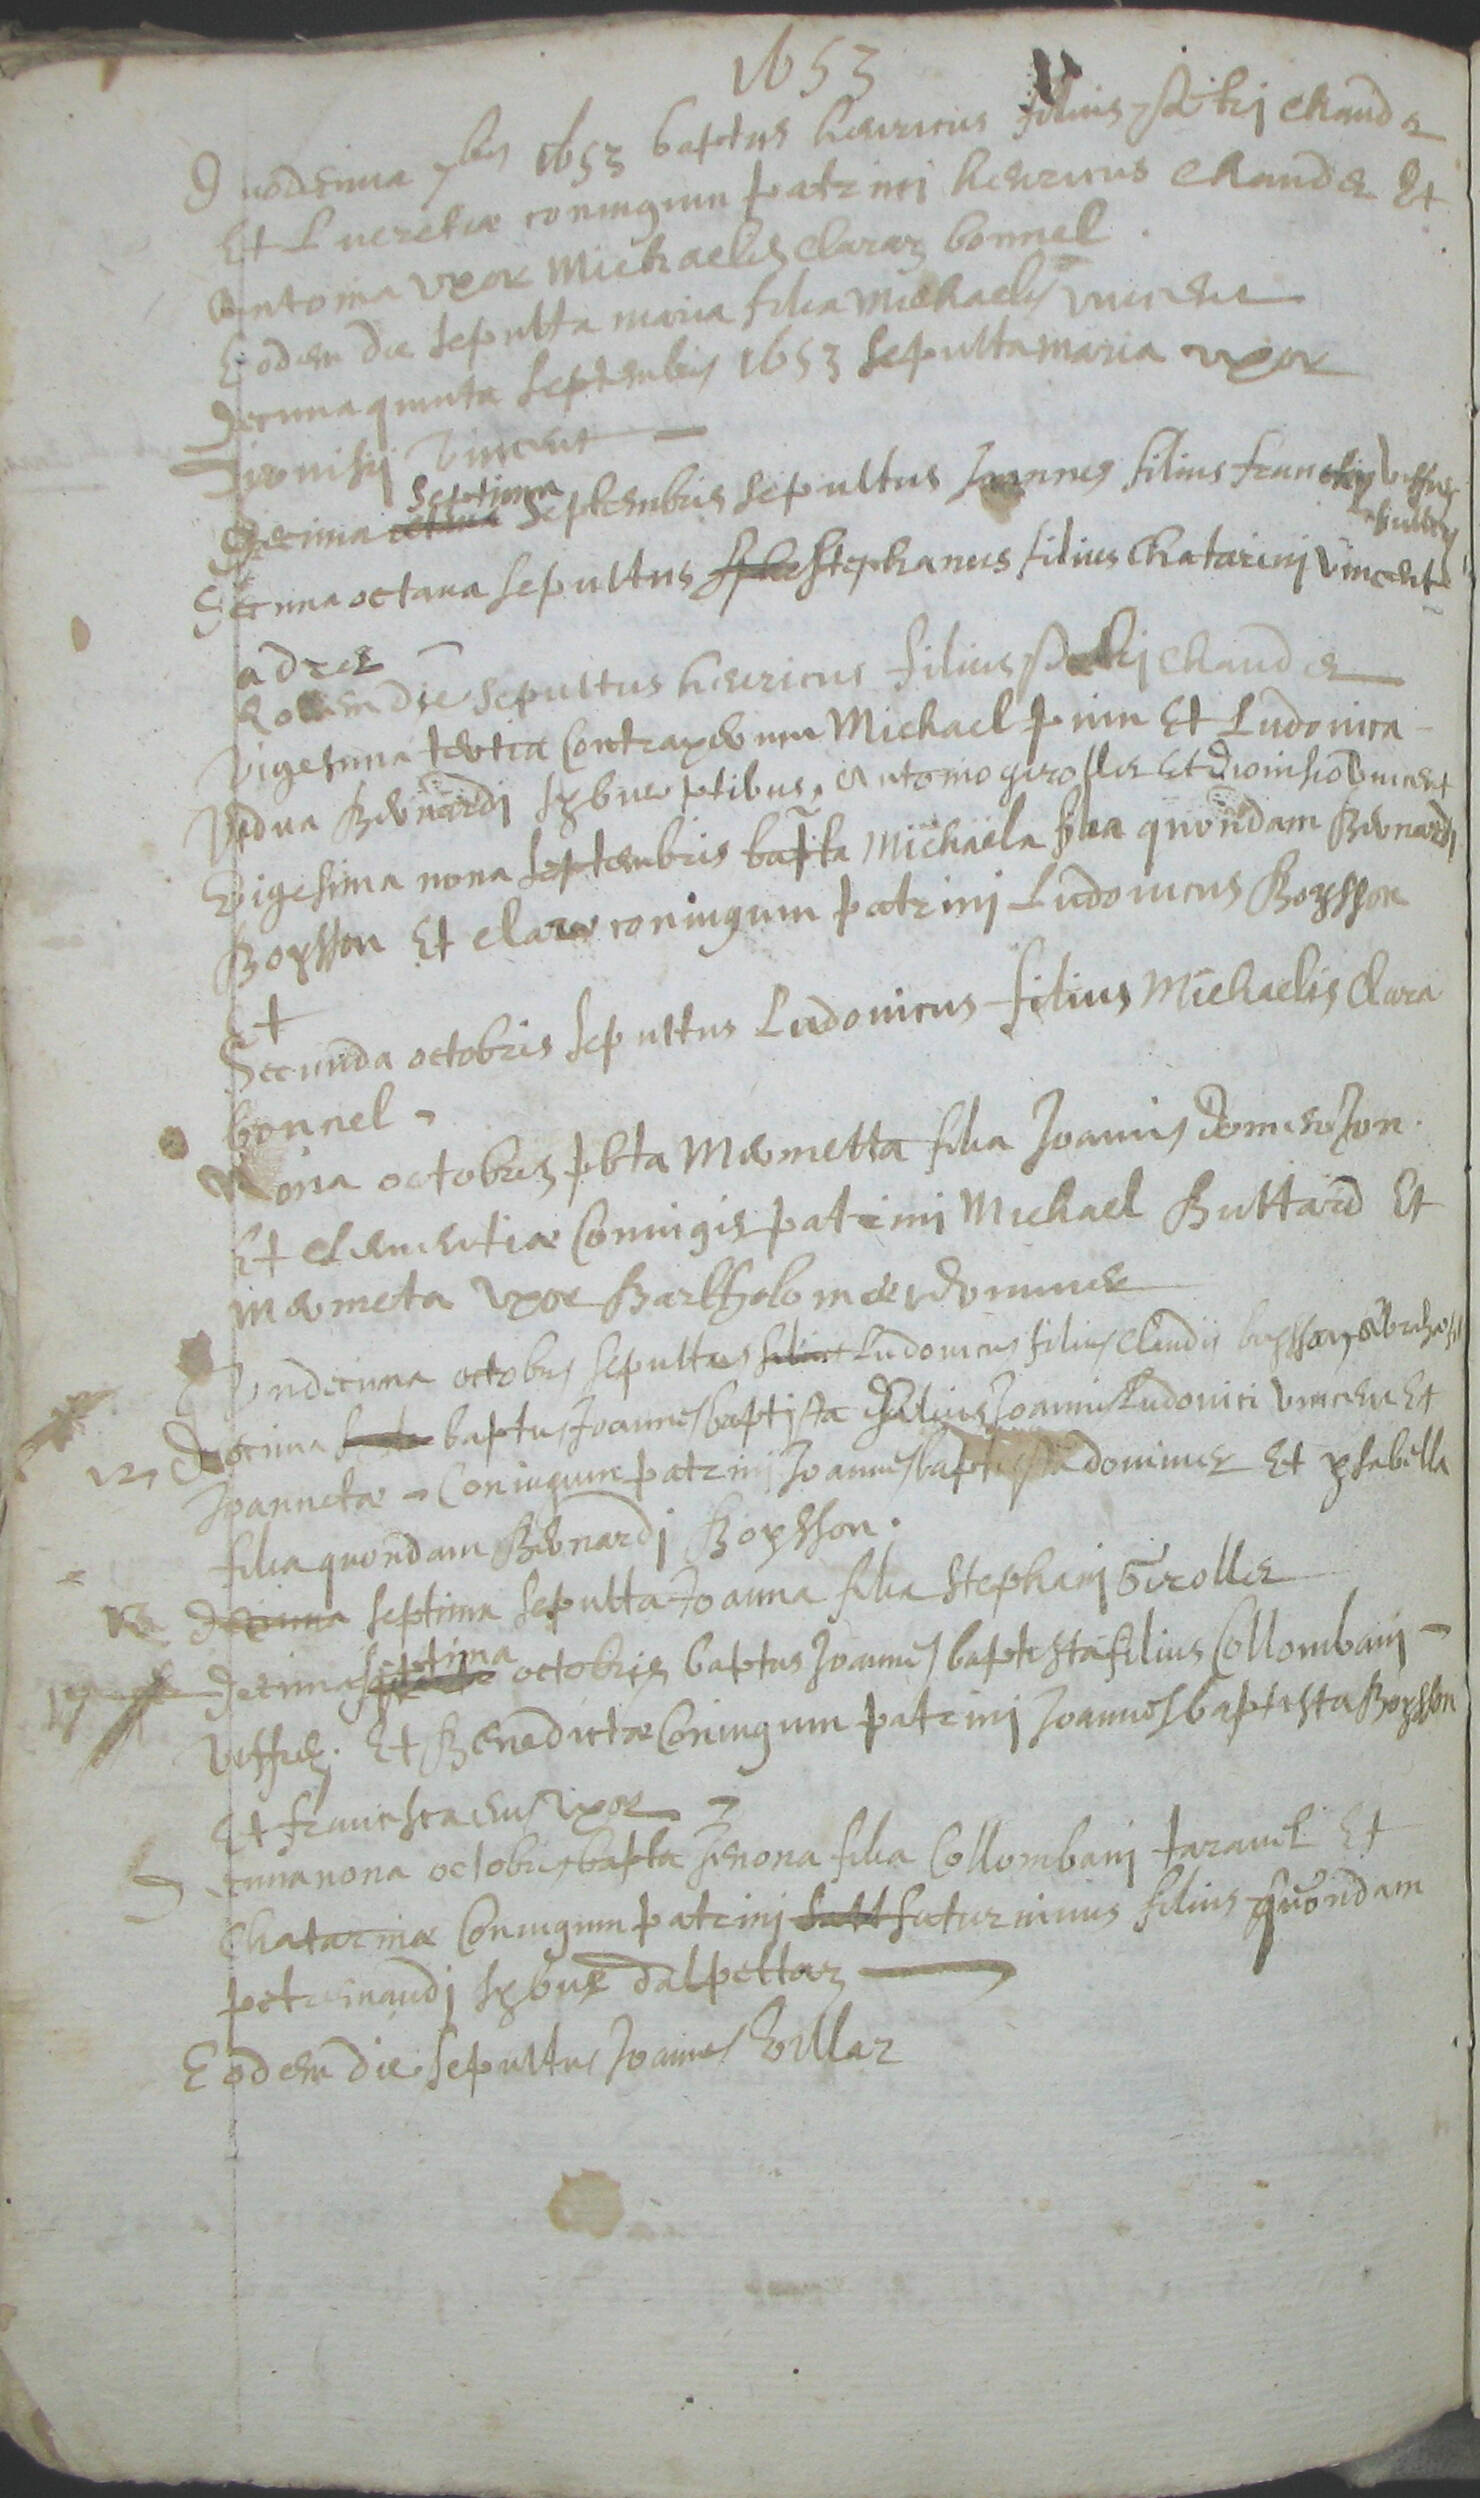 1653
Duodecima 7bris 1653 baptus henricus filius chaudet
Et Lucretiæ coniugum patrini henricus chaudet Et
Antonia vxor Michaelis claraz bonnel
Eodem die sepulta maria filia Michaelis vincent
Decimaquinta septembris 1653 sepulta maria vxor
Dionisij vincent
septima
Decima septembris sepultus Joannes filius francisci
Decima octaua sepultus stephanus filius Chatarini vincent
adrer
Eodem die sepultus henricus filius chaudet
Vigesima tertia Contraxerunt Michael prin Et Ludouica
Vidua Bernardi sybue ptibus, Antonio girollet Et Dionisio vincent
Vigesima nona septembris bapta Michaela filia quondam Bernardi
Boysson Et claræ coniugum patrini Ludouicus Boysson
+
Secunda octobris sepultus Ludouicus filius Michaelis Clara
bonnel
Nona octobris Mermetta filia Joannis
Et Clementiæ Coniugis patrini Michael Buttard Et
Mermeta vxor Bartholomei dominet
Vndecima octobris sepultus Ludouicus filius Claudii boysson
12 Decima baptus Joannes baptista filius Joannis Ludouici vincent Et
Joannetæ Coniugum patrini Joannes baptista dominet Et ysabella
filia quondam Bernardi Boysson.
Decima septima sepulta Joanna filia stephani Girollet
septima
17 Decima octobris baptus Joannes baptista filius Collombani
veffrez. Et Benedictæ Coniugum patrini Joannes baptista Boysson
Et francisca eius vxor
cima nona octobris bapta Jenona filia Collombani tarauel Et
Chatarinæ Coniugum patrini saturninus filius quondam
petremandi sybue dalpettaz
Eodem die sepultus Joannes Villar